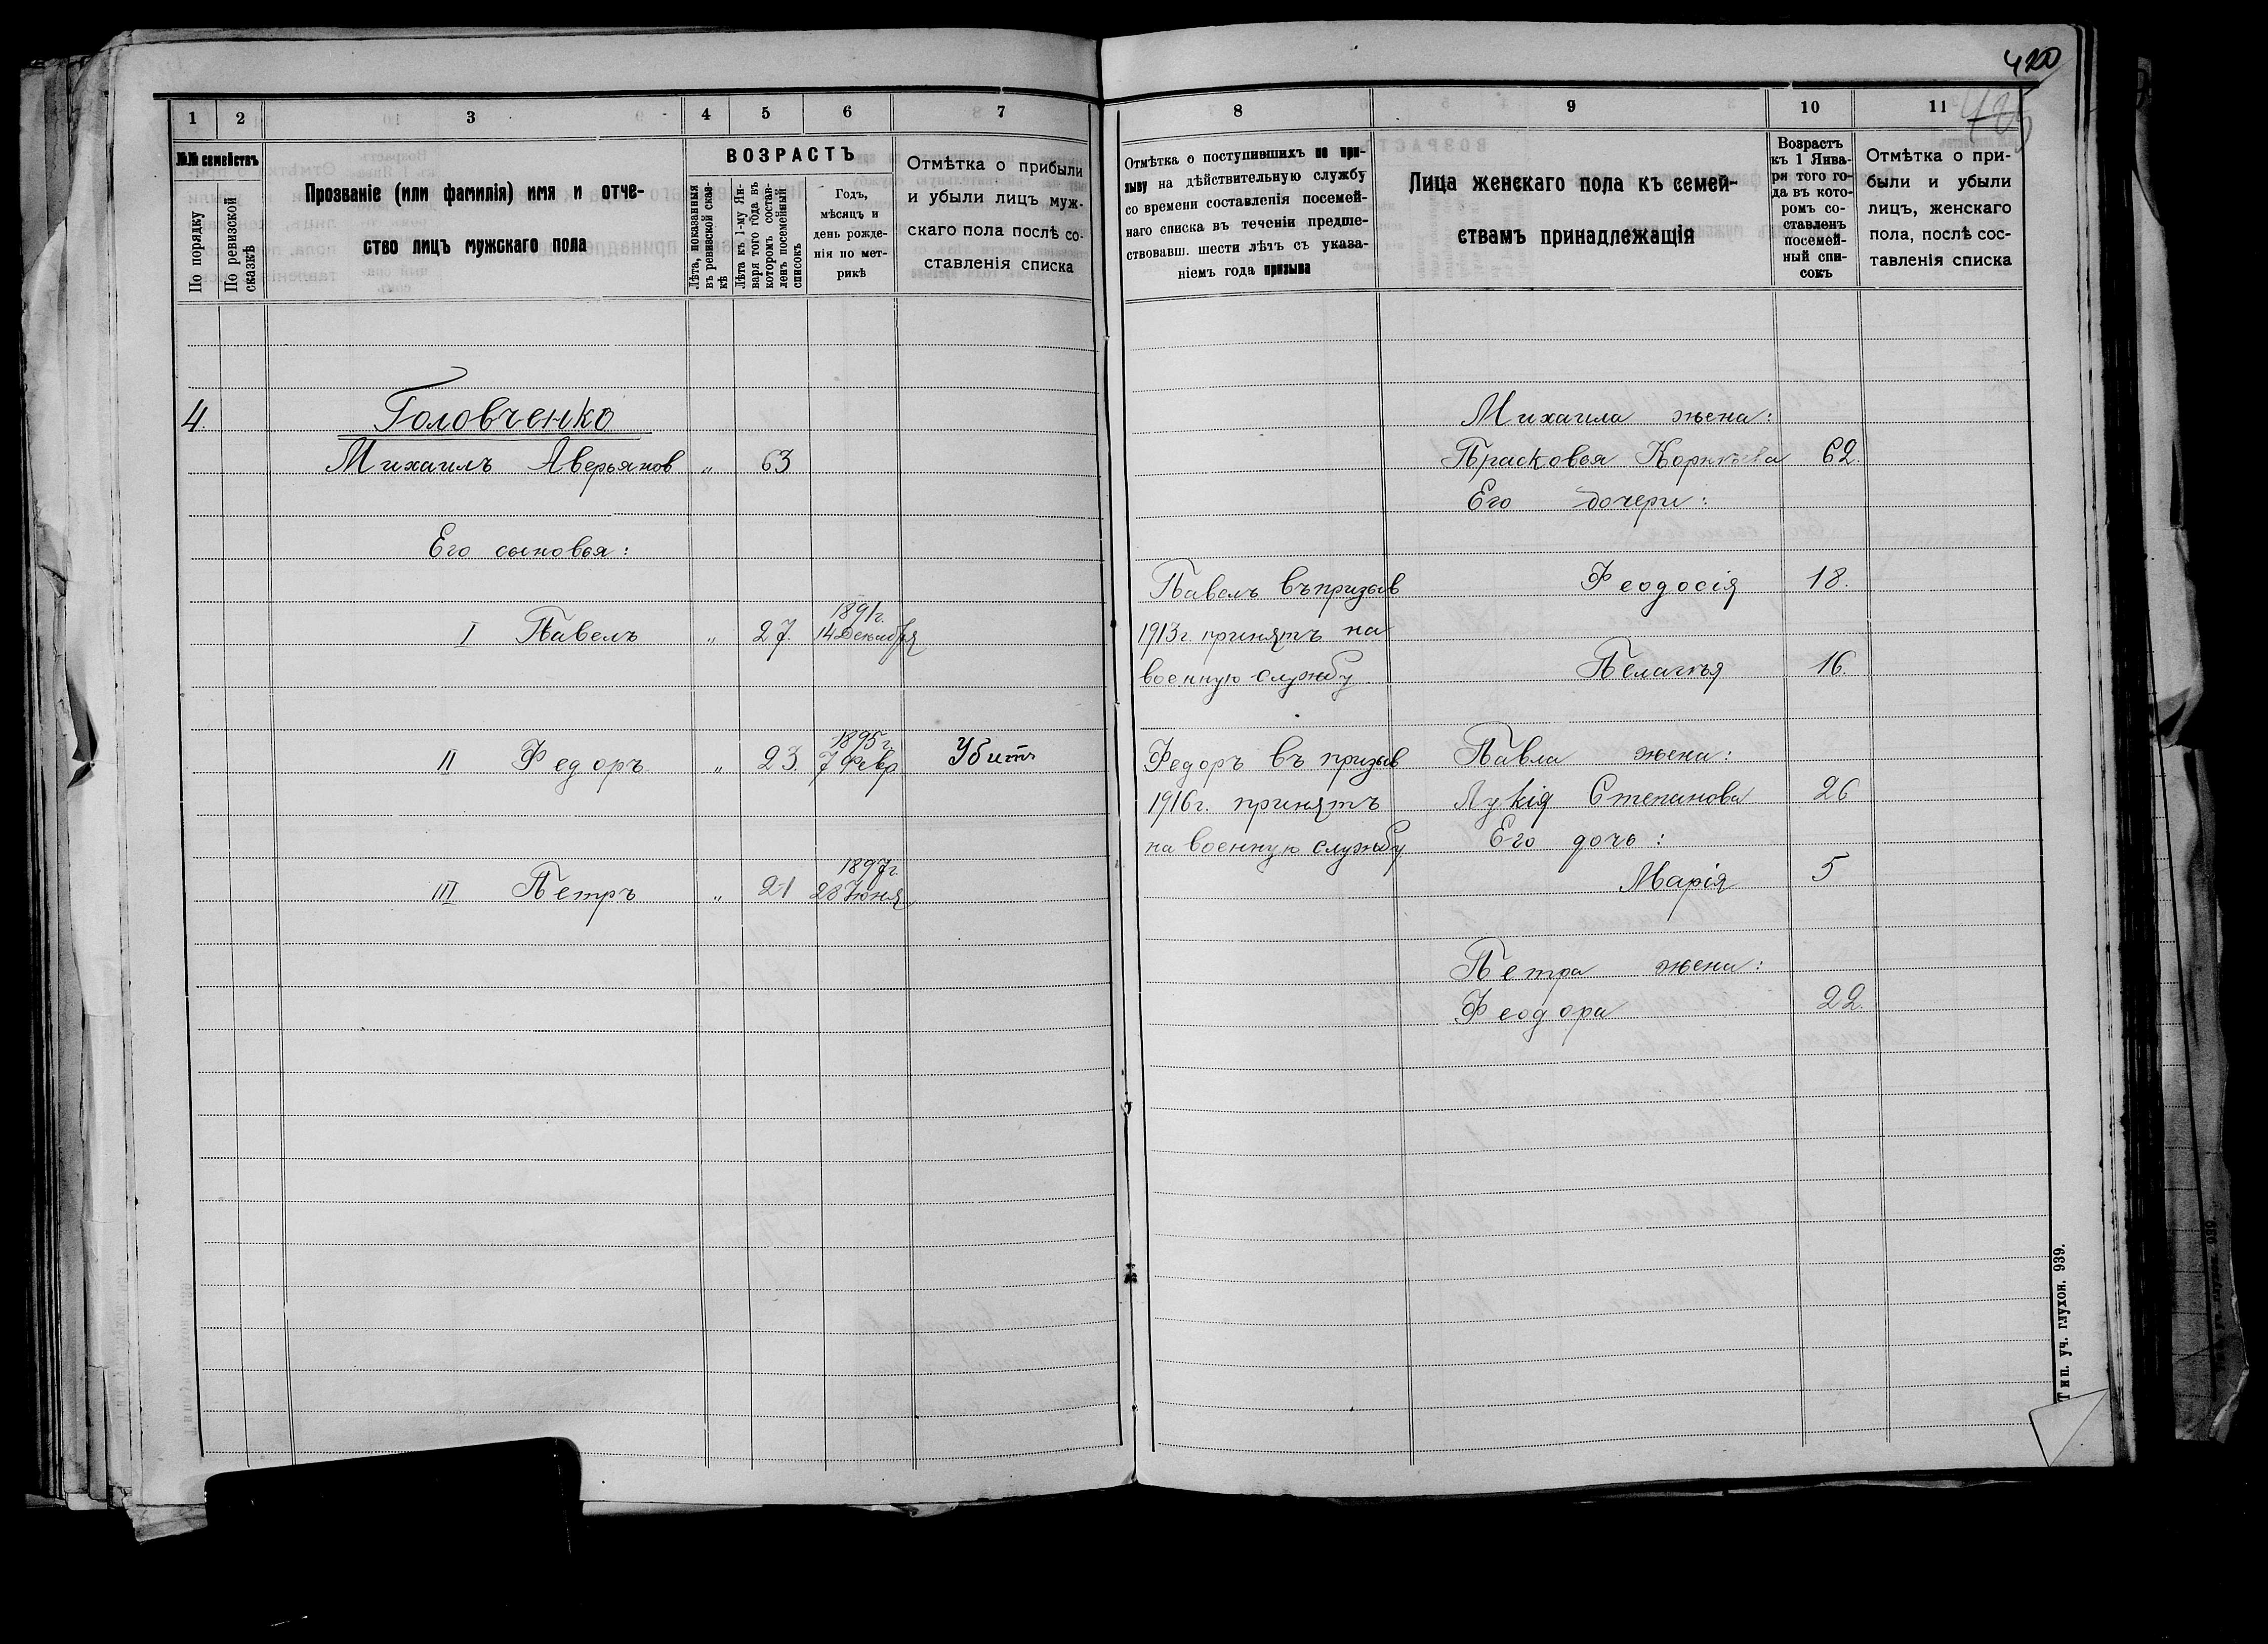 420
485
1 2 3 4 5 6 7
№№ семействъ
По порядку
По ревизской сказкѣ
Прозваніе (или фамилія) имя и отче-
ство лицъ мужскаго пола
ВОЗРАСТЪ
Лѣта, показанныя
въ ревизской сказ-
кѣ
Лѣта къ 1-му Ян-
варя того года въ
которомъ состав-
ленъ посемейный
списокъ
Годъ,
мѣсяцъ и
день рожде-
нія по мет-
рикѣ
Отмѣтка о прибыли
и убыли лицъ муж-
скаго пола послѣ со-
ставленія списка
4. Головченко
Михаилъ Аверьянов „ 63
Его сыновья:
I Павелъ „ 27. 1891г.
14 Декабря
II Федоръ „ 23. 1895г.
7 Февр. Убитъ
III Петръ „ 21 1897г.
28 Июня
8 9 10 11
Отмѣтка о поступившихъ по при-
зыву на дѣйствительную службу
со времени составленія посемей-
наго списка въ теченіи предше-
ствовавш. шести лѣтъ съ указа-
ніемъ года призыва
Лица женскаго пола къ семей-
ствамъ принадлежащія
Возрастъ
къ 1 Янва-
ря того го-
да въ кото-
ромъ со-
ставленъ
посемей-
ный спи-
сокъ
Отмѣтка о при-
были и убыли
лицъ, женскаго
пола, послѣ сос-
тавленія списка
Михаила жена:
Прасковья 62.
Его дочери:
Павелъ въ призыв Феодосія 18.
1913г. принятъ на
военную службу Пелагья 16.
Федоръ въ призыв Павла жена:
1916г. принятъ Лукія Степанова 26
на военную службу Его дочь:
Марія 5
Петра жена:
Феодора 22.
Тип. уч. глухон. 939.